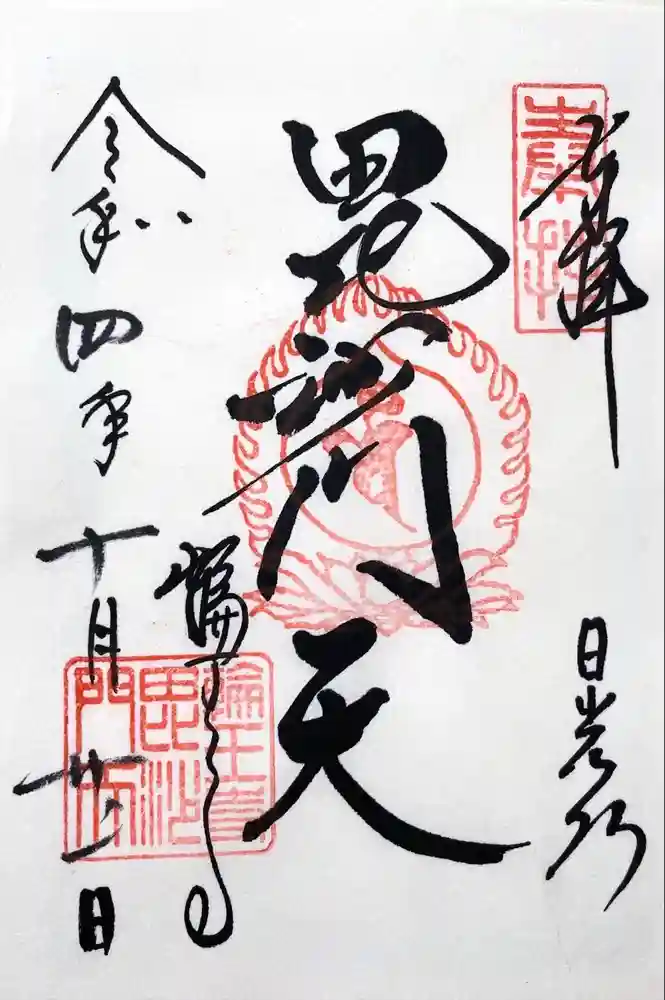 奉拝
奉拝
日光山
毘沙門天
輪王寺
輪王寺
毘沙
門
令和四年十月廿二日